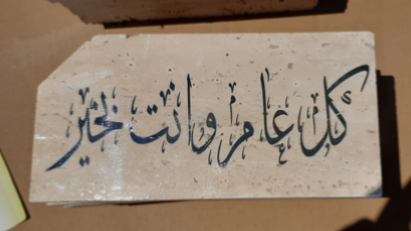 كل عام وانت بخير